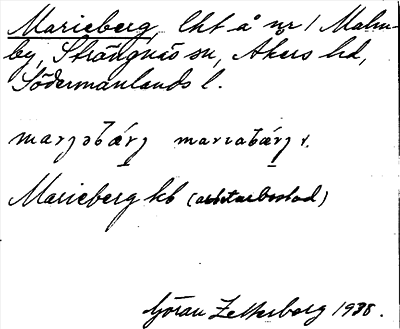 Marieberg, lht å nr 1 Malm-
by, Strängnäs sn, Åkers hd,
Södermanlands l.
Marieberg kb (arbetarbostad)
Göran Zetterberg 1938.